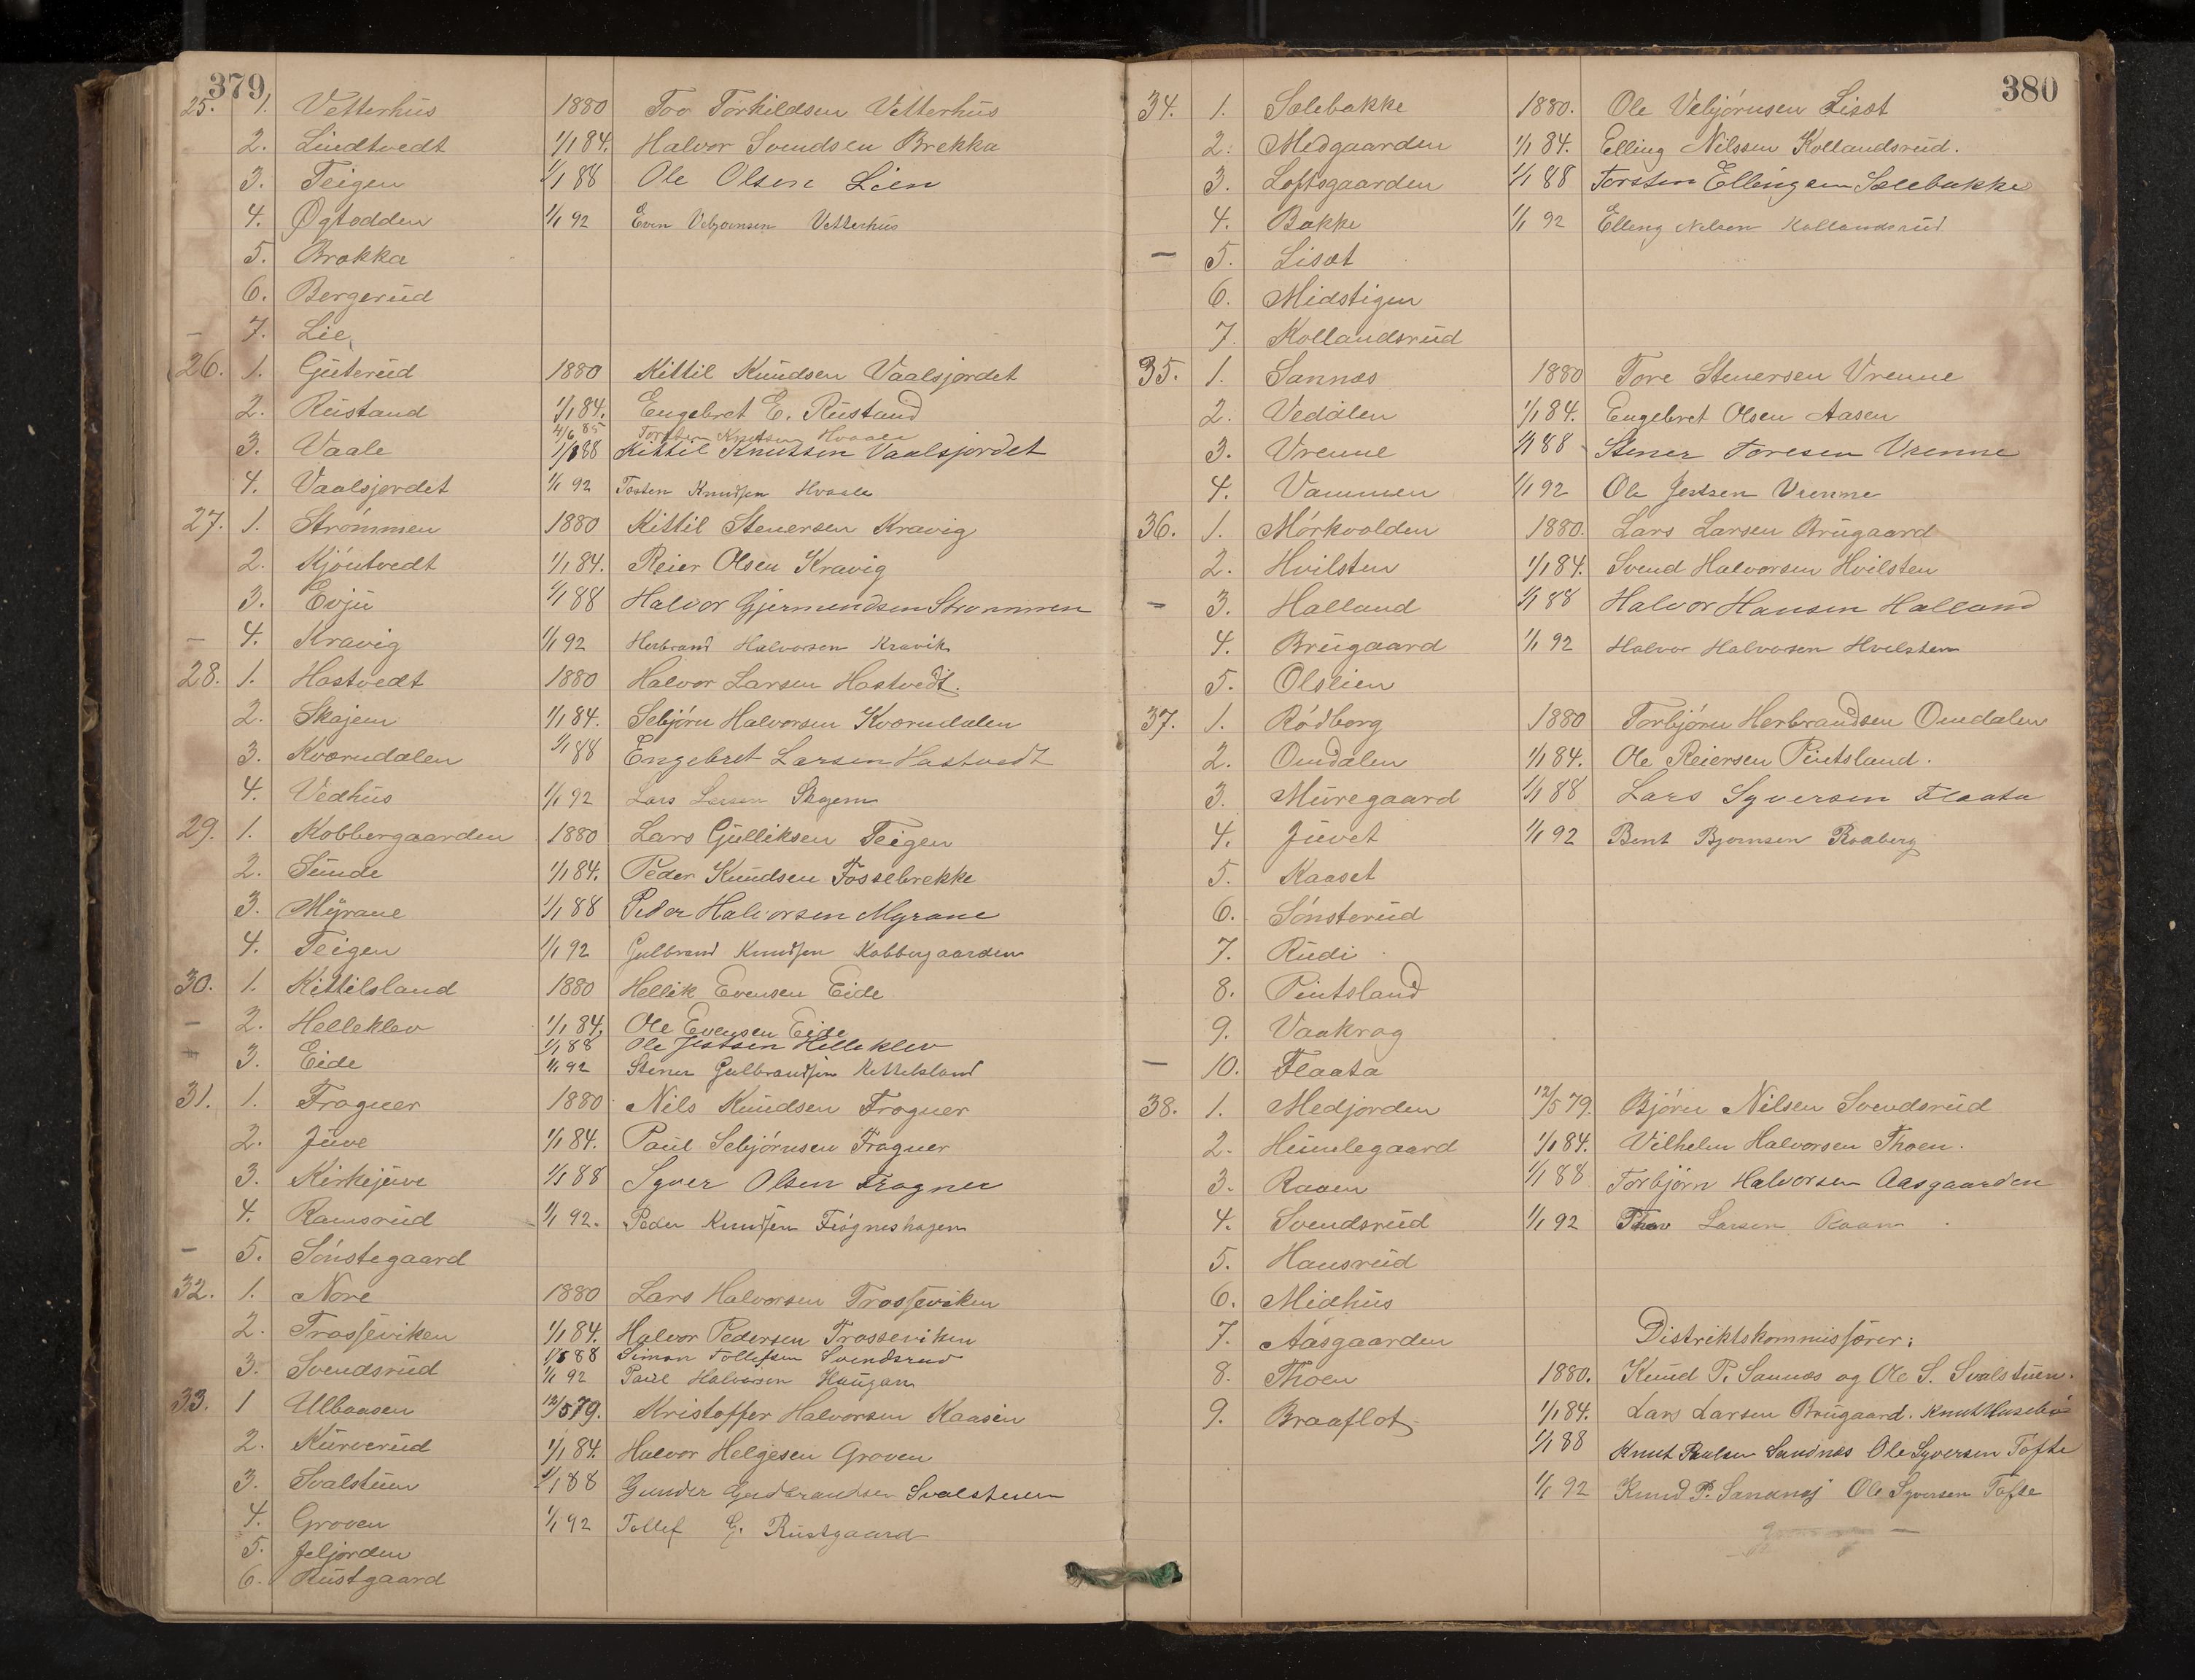 379
25. 1. Vetterhus 1880 Tov Torkildsen Vetterhus
2. Lindtvedt 1/1 84. Halvor Svendsen Brekka
3. Teigen 1/1 88 Ole Olsen Lien
4. Øgtodden 1/1 92 Even Vebjørnsen Vetterhus
5. Brækka
6. Bergerud
— 7. Lie
26. 1. Guterud 1880 Kittil Knudsen Vaalsjordet
2. Rustand 1/1 84. Engebret E. Rustand
4/6 85 Knutsen Hvaale
3. Vaale 1/1 88 Kittil Knutsen Vaalsjordet
4. Vaalsjordet 1/1 92 Tosten Knudsen Hvaale
27. 1. Strømmen 1880 Kittil Stenersen Kravig
2. Kjøntvedt 1/1 84. Reier Olsen Kravig
3. Evju 1/1 88 Halvor Gjermundsen Strømmen
— 4. Kravig 1/1 92 Herbrand Halvorsen Kravik
28. 1. Hastvedt 1880 Halvor Larsen Hastvedt.
2. Skajem 1/1 84. Sebjørn Halvorsen Kværndalen
3. Kværndalen 1/1 88 Engebret Larsen Hastvedt
4. Vedhus 1/1 92 Lars Larsen Skajem
29. 1. Kobbergaarden 1880 Lars Gulliksen Teigen
2. Sunde 1/1 84. Peder Knudsen Fossebrekke
3. Myrane 1/1 88 Peder Halvorsen Myrane
4. Teigen 1/1 92 Gulbrand Knudsen Kobbergaarden
30. 1. Kittilsland 1880 Hellik Evensen Eide
— 2. Helleklev 1/1 84. Ole Evensen Eide
1/1 88 Ole Jestsen Helleklev
3. Eide
1/1 92 Stener Gulbrandsen Kittelsland
31. 1. Frogner 1880 Nils Knudsen Frogner
2. Juve 1/1 84. Paul Sebjørnsen Frogner
3. Kirkejuve 1/1 88 Syver Olsen Frogner
4. Ramsrud 1/1 92. Peder Knudsen Frogneshagen
— 5. Sønstegaard
32. 1. Nore 1880 Lars Halvorsen Trosseviken
2. Trosseviken 1/1 84. Halvor Pedersen Trosseviken
1/1 88 Simon Tollefsen Svendsrud
3. Svendsrud 1/1 92 Paul Halvorsen Haugan
33. 1 Ulbaasen 12/5 79. Kristoffer Halvorsen Kaasin
2. Kurverud 1/1 84. Halvor Helgesen Groven
3. Svalstuen 1/1 88 Gunder Gudbrandsen Svalstuen
4. Groven 1/1 92 Tollef G. Rustgaard
5. Jeljorden
6. Rustgaard
380
34. 1. Sælebakke 1880. Ole Vebjørnsen Lisæt
2. Medgaarden 1/1 84. Elling Nilssen Kollandsrud.
3. Loftsgaarden 1/1 88 Torsten Ellingsen Sælebakke
4. Bakke 1/1 92 Elling Nelsen Kollandsrud
— 5. Lisæt
6. Midstigen
7. Kollandsrud
35. 1. Sannæs 1880 Tore Stenersen Vrenne
2. Vedalen 1/1 84. Engebret Olsen Aasen
3. Vrenne 1/1 88 Stener Toresen Vrenne
4. Vammen 1/1 92 Ole Jestsen Vrenne
36. 1. Mørkvolden 1880. Lars Larsen Brugaard
2. Hvilsten 1/1 84. Svend Halvorsen Hvilsten
— 3. Halland 1/1 88 Halvor Hansen Halland
4. Brugaard 1/1 92 Halvor Halvorsen Hvilsten
5. Olslien
37. 1. Rødberg 1880 Torbjørn Herbrandsen Omdalen
2. Omdalen 1/1 84. Ole Reiersen Pintsland.
3. Muregaard 1/1 88 Lars Syversen Flaata
4. Juvet 1/1 92 Bent Bjørnsen Rødberg
5. Kaaset
6. Sønsterud
7. Rudi
8. Pintsland
9. Vaakrag
— 10. Flaata
38. 1. Medjorden 12/5 79. Bjørn Nilsen Svendsrud
2. Humlegaard 1/1 84. Vilhelm Halvorsen Thoen.
3. Raaen 1/1 88 Torbjørn Halvorsen Aasgaarden
4. Svendsrud 1/1 92 Thov Larsen Raaen
5. Hansrud
6. Midhus
7. Aasgaarden Distriktskommissærer:
8. Thoen 1880. Knud P. Sannæs og Ole S. Svalstuen.
9. Braaflot 1/1 84. Lars Larsen Brugaard. Knut Husebø
1/1 88 Knut Paulsen Sandnæs Ole Syversen Tofte
1/1 92 Knud P. Sandnæs Ole Syversen Tofte